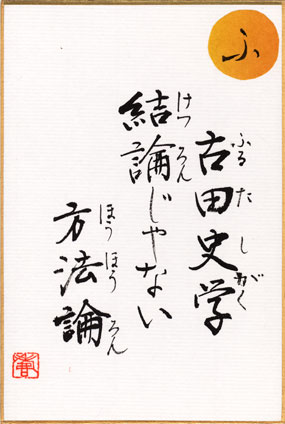 ふ
古田史学
ふるたしがく
結論じゃない
けつろん
方法論
ほうほうろん